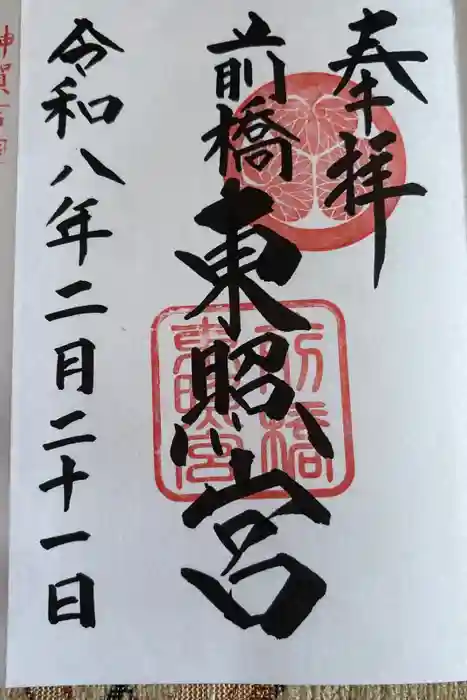 奉拝
前橋
東照宮
令和八年二月二十一日
前橋
東照宮